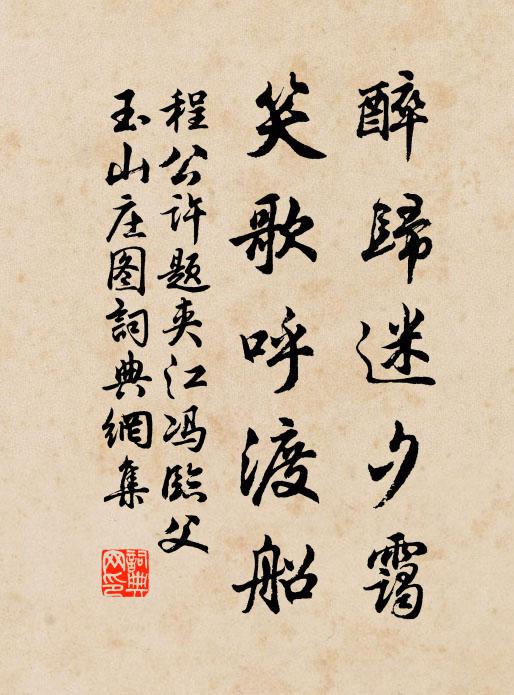 醉歸迷夕靄
笑歌呼渡船
程公許題夾江冯臨父
玉山庄图詞典網集
詞典网印